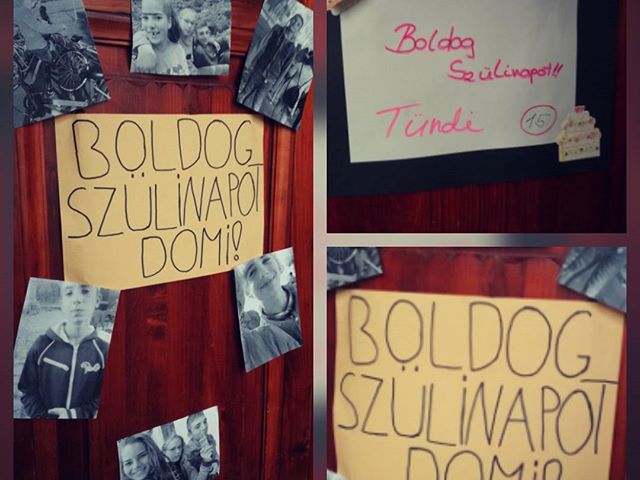 BOLDOG
SZÜLiNAPOT
DOMi!
Boldog
Szülinapot!!
Tündi
15
BOLDOG
SZÜLiNAPOT
DOMi!